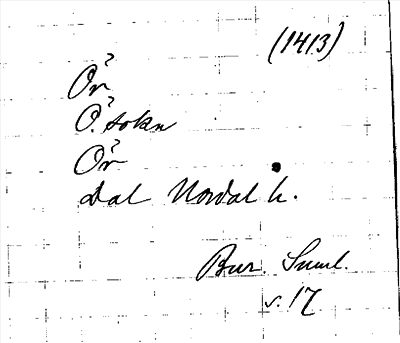 (1413)
Ör
Ö. sokn
Ör
dal Nordal h.
Bur. Suml.
s. 17